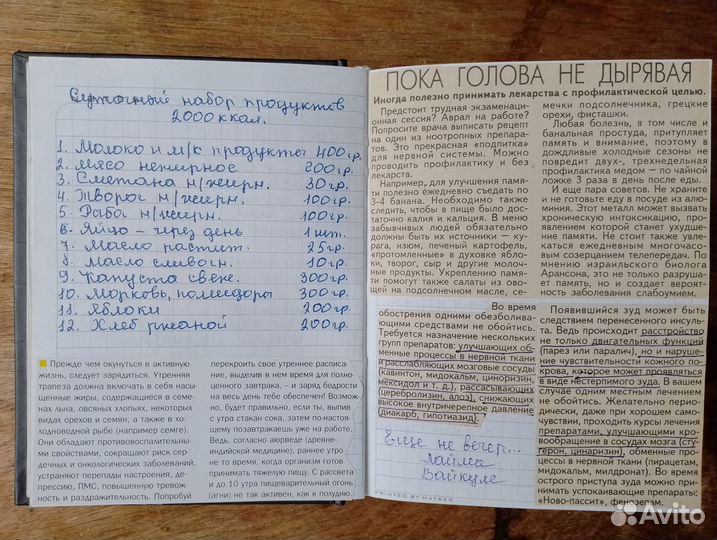 Суточный набор продуктов
2000 ккал.
1. Молоко и м/к продукты 400 гр.
2. Мясо нежирное 200 гр.
3. Сметана н/жирн. 30 гр.
4. Творог н/жирн. 100 гр.
5. Рыба н/жирн. 100 гр.
6. Яйцо - через день 1 шт.
7. Масло растит. 25 гр.
8. Масло сливочн. 10 гр.
9. Капуста свеж. 300 гр.
10. Морковь, помидоры 300 гр.
11. Яблоки 200 гр.
12. Хлеб ржаной 200 гр.
Прежде чем окунуться в активную
жизнь, следует зарядиться. Утренняя
трапеза должна включать в себя насы-
щенные жиры, содержащиеся в семе-
нах льна, овсяных хлопьях, некоторых
видах орехов и семян, а также в хо-
лодноводной рыбе (например семге).
Они обладают противовоспалитель-
ными свойствами, сокращают риск сер-
дечных и онкологических заболеваний,
устраняют перепады настроения, де-
прессию, ПМС, повышенную тревож-
ность и раздражительность. Попробуй
перекроить свое утреннее расписа-
ние, выделив в нем время для полно-
ценного завтрака, – и заряд бодрости
на весь день тебе обеспечен! Возмож-
но, будет правильно, если ты, выпив
с утра стакан сока, затем по-настоя-
щему позавтракаешь уже на работе.
Ведь, согласно аюрведе (древне-
индийской медицине), раннее утро
не то время, когда организм готов
принимать тяжелую пищу. С рассвета
и до 10 утра пищеварительный огонь
(агни) не так активен, как к полудню.
ПОКА ГОЛОВА НЕ ДЫРЯВАЯ
Иногда полезно принимать лекарства с профилактической целью.
Предстоит трудная экзаменаци-
онная сессия? Аврал на работе?
Попросите врача выписать рецепт
на один из ноотропных препара-
тов. Это прекрасная «подпитка»
для нервной системы. Можно
проводить профилактику и без
лекарств.
Например, для улучшения памя-
ти полезно ежедневно съедать по
3-4 банана. Необходимо также
следить, чтобы в пище было дос-
таточно калия и кальция. В меню
забывчивых людей обязательно
должны быть их источники – ку-
рага, изюм, печеный картофель,
«протомленные» в духовке ябло-
ки, творог, сыр и другие молоч-
ные продукты. Укреплению памя-
ти помогут также салаты из овощ-
ей на подсолнечном масле, се-
мечки подсолнечника, грецкие
орехи, фисташки.
Любая болезнь, в том числе и
банальная простуда, притупляет
память и внимание, поэтому в
дождливые холодные сезоны не
повредит двух-, трехнедельная
профилактика медом – по чайной
ложке 3 раза в день после еды.
И еще пара советов. Не храните
и не готовьте еду в посуде из алю-
миния. Этот металл может вызвать
хроническую интоксикацию, про-
явлением которой станет ухудше-
ние памяти. Не стоит также увле-
каться ежедневным многочасо-
вым созерцанием телепередач. По
мнению израильского биолога
Арансона, это не только разрушает
память, но и создает вероят-
ность заболевания слабоумием.
Во время
обострения одними обезболива-
ющими средствами не обойтись.
Требуется назначение нескольких
групп препаратов: улучшающих об-
менные процессы в нервной ткани
и расслабляющих мозговые сосуды
(кавинтон, мидокальм, циноризин,
мексидол и т. д.), рассасывающих
(церебролизин, алоэ), снижающих
высокое внутричерепное давление
(диакарб, гипотиазид).
Еще не вечер...
Лайма
Вайкуле
PRINTED BY HATBER
Появившийся зуд может быть
следствием перенесенного инсуль-
та. Ведь происходит расстройство
не только двигательных функций
(парез или паралич), но и наруше-
ние чувствительности кожного по-
крова, которое может проявляться
в виде нестерпимого зуда. В вашем
случае одним местным лечением
не обойтись. Желательно перио-
дически, даже при хорошем само-
чувствии, проходить курсы лечения
препаратами, улучшающими кро-
вообращение в сосудах мозга (сту-
герон, цинаризин), обменные про-
цессы в нервной ткани (пирацетам,
мидокальм, милдронат). Во время
острого приступа зуда можно при-
нимать успокаивающие препараты:
«Ново-пассит», фенозепам.
Avito